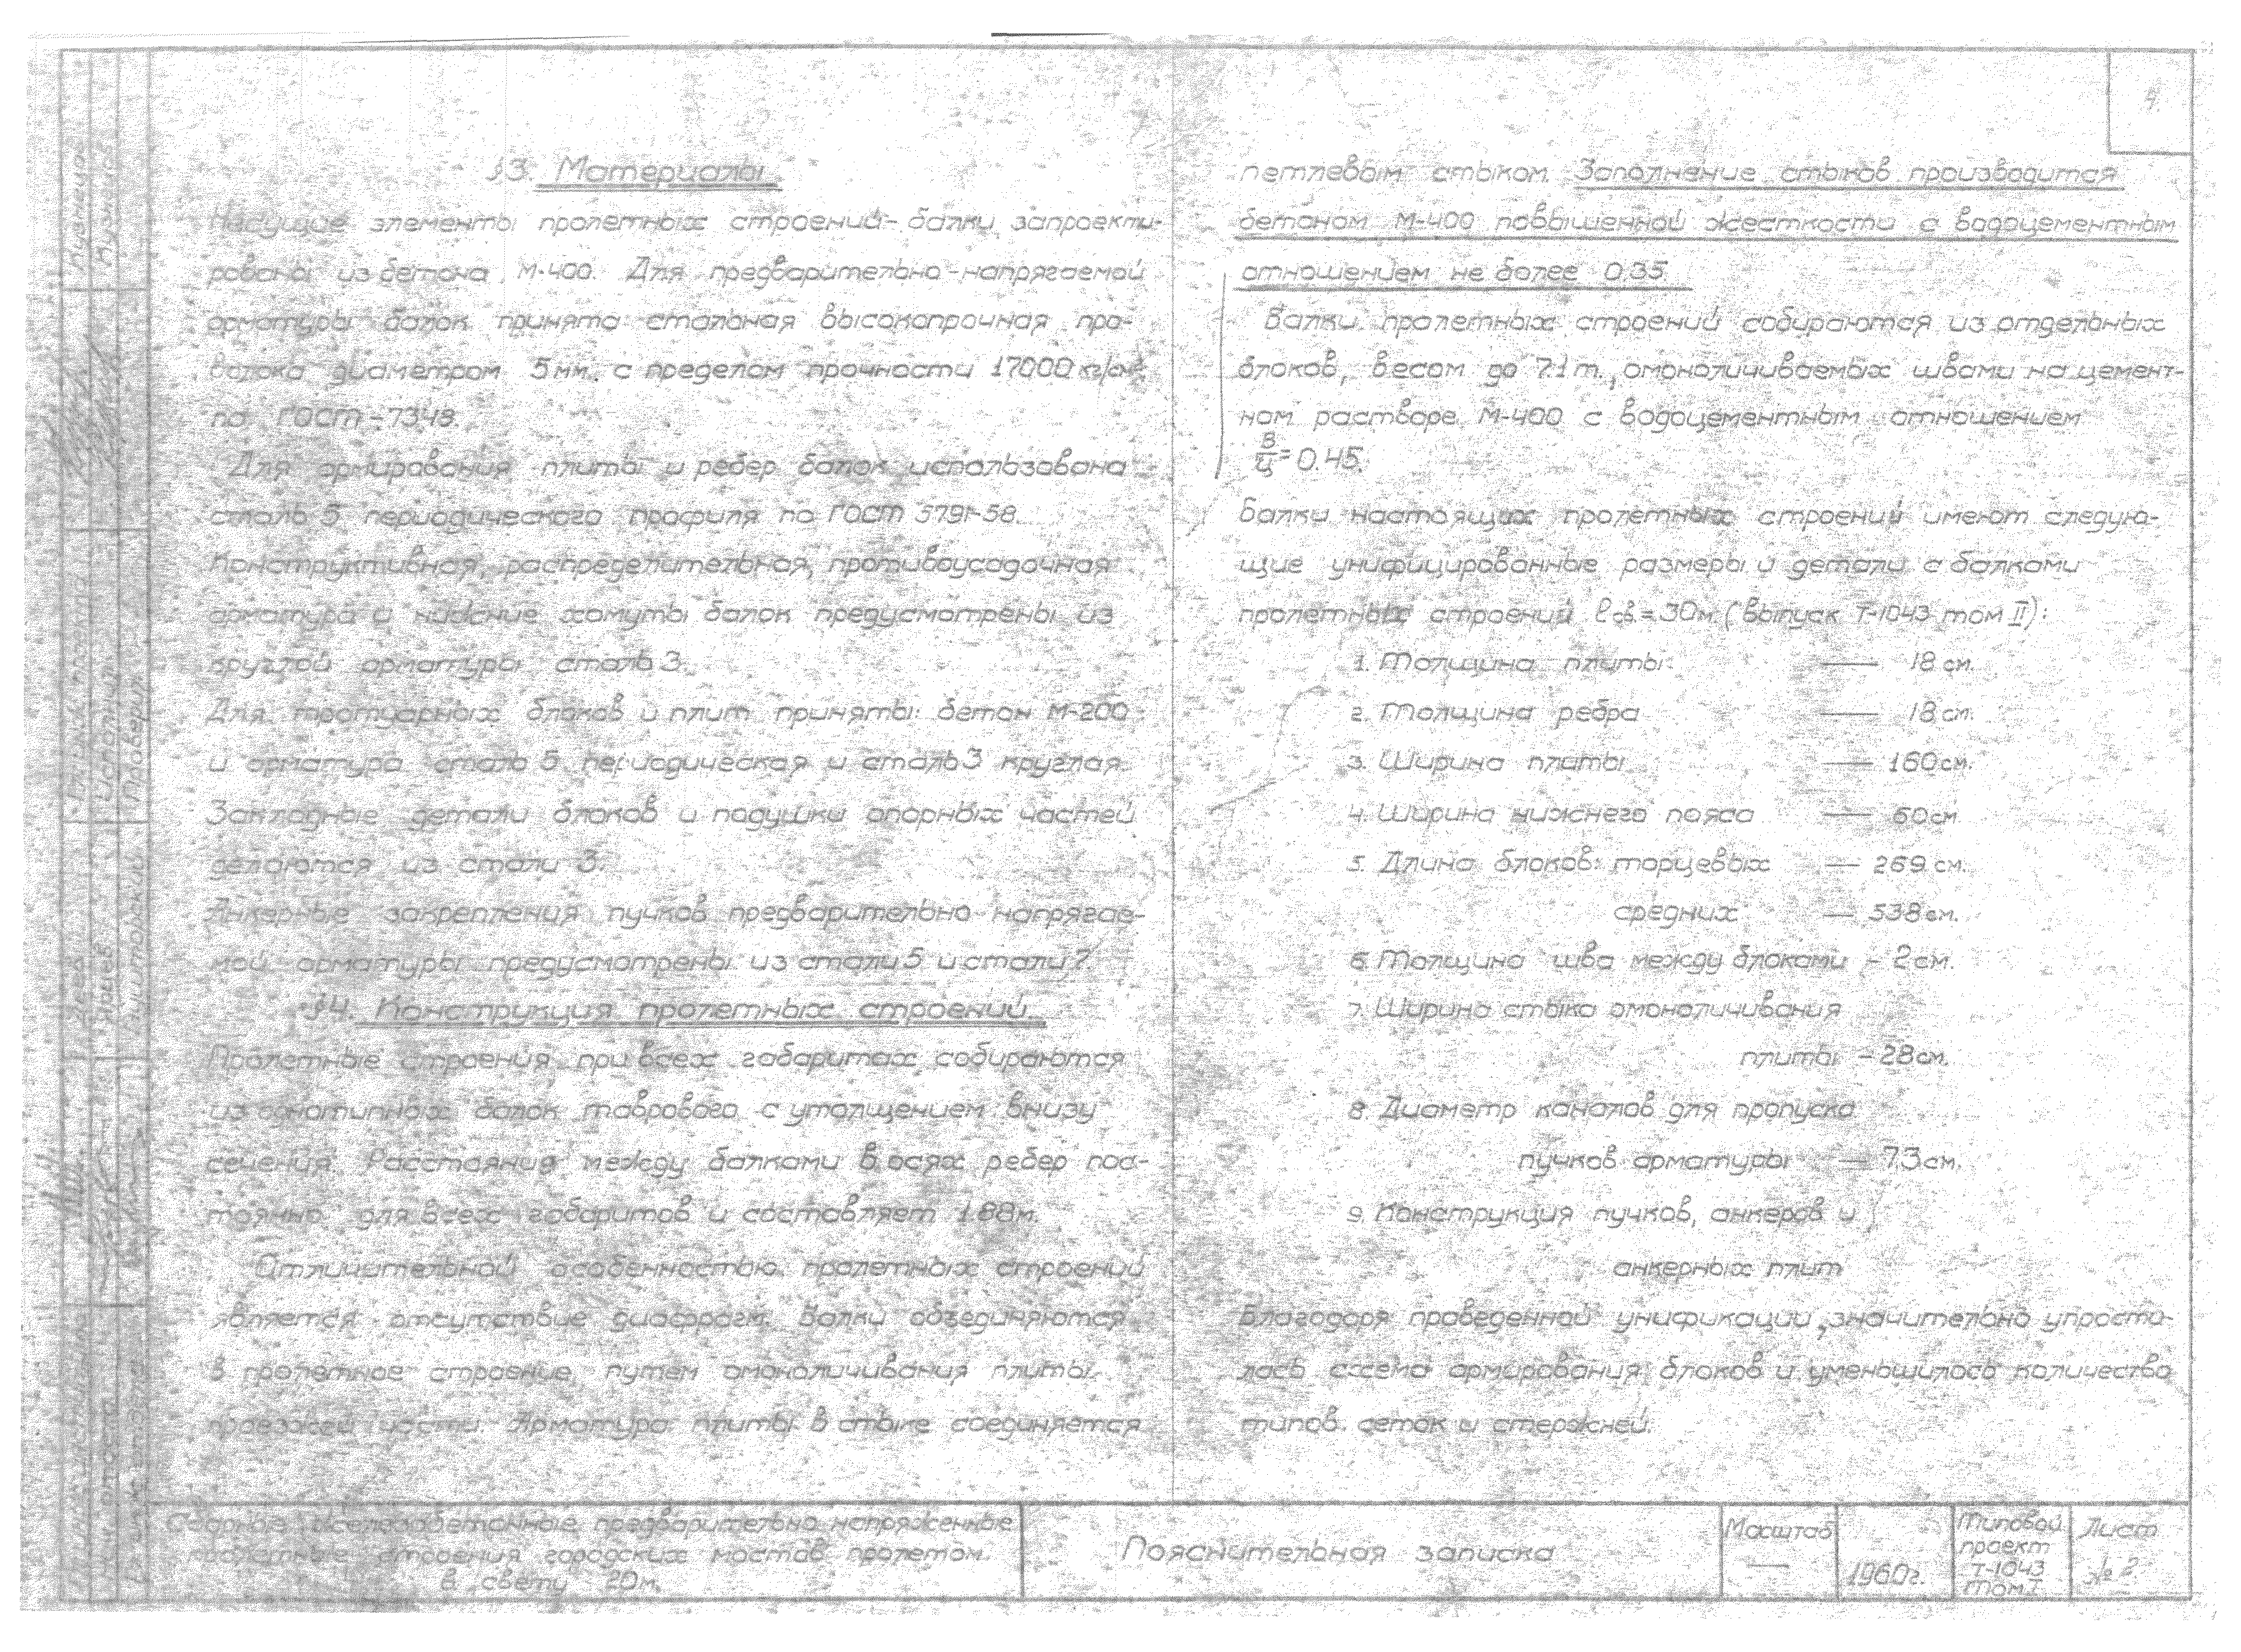 §3. Материалы
Несущие элементы пролетных строений-балки запроекти-
рованы из бетона М-400. Для предварительно-напрягаемой
арматуры балок принята стальная высокопрочная про-
волока диаметром 5мм. с пределом прочности 17000 кг/см²
по ГОСТ-7348.
Для армирования плиты и ребер балок использована
сталь 5 периодического профиля по ГОСТ 5791-58.
Конструктивная, распределительная, противоусадочная
арматура и нижние хомуты балок предусмотрены из
круглой арматуры сталь 3.
Для тротуарных блоков и плит приняты: бетон М-200
и арматура сталь 5 периодическая и сталь 3 круглая.
Закладные детали блоков и подушки опорных частей
делаются из стали 3.
Анкерные закрепления пучков предварительно напрягае-
мой арматуры предусмотрены из стали 5 и стали 7.
§4. Конструкция пролетных строений
Пролетные строения при всех габаритах собираются
из однотипных балок таврового с утолщением внизу
сечения. Расстояние между балками в осях ребер пос-
тоянно для всех габаритов и составляет 1.88м.
Отличительной особенностью пролетных строений
является отсутствие диафрагм. Балки объединяются
в пролетное строение путем омоноличивания плиты
проезжей части. Арматура плиты в стыке соединяется
4.
петлевым стыком. Заполнение стыков производится
бетоном М-400 повышенной жесткости с водоцементным
отношением не более 0.35.
Балки пролетных строений собираются из отдельных
блоков, весом до 7.1т., омоноличиваемых швами на цемент-
ном растворе М-400 с водоцементным отношением
В/Ц = 0.45.
Балки настоящих пролетных строений имеют следую-
щие унифицированные размеры и детали с балками
пролетных строений ℓ св.=30м. (Выпуск Т-1043 том II):
1. Толщина плиты — 18 см.
2. Толщина ребра — 18 см.
3. Ширина плиты — 160 см.
4. Ширина нижнего пояса — 60 см
5. Длина блоков: торцевых — 269 см.
средних — 538 см.
6. Толщина шва между блоками - 2 см.
7. Ширина стыка омоноличивания
плиты - 28 см.
8. Диаметр каналов для пропуска
пучков арматуры — 7.3 см.
9. Конструкция пучков, анкеров и
анкерных плит
Благодаря проведенной унификации, значительно упрости-
лась схема армирования блоков и уменьшилось количество
типов сеток и стержней.
Сборные железобетонные предварительно напряженные
пролетные строения городских мостов пролетом
в свету 20 м.
Пояснительная записка
Масштаб
—
1960г.
Типовой
проект
Т-1043
Том I
Лист
№ 2
Гл. инж. проекта
Исполнил
Проверил
Кузнецов